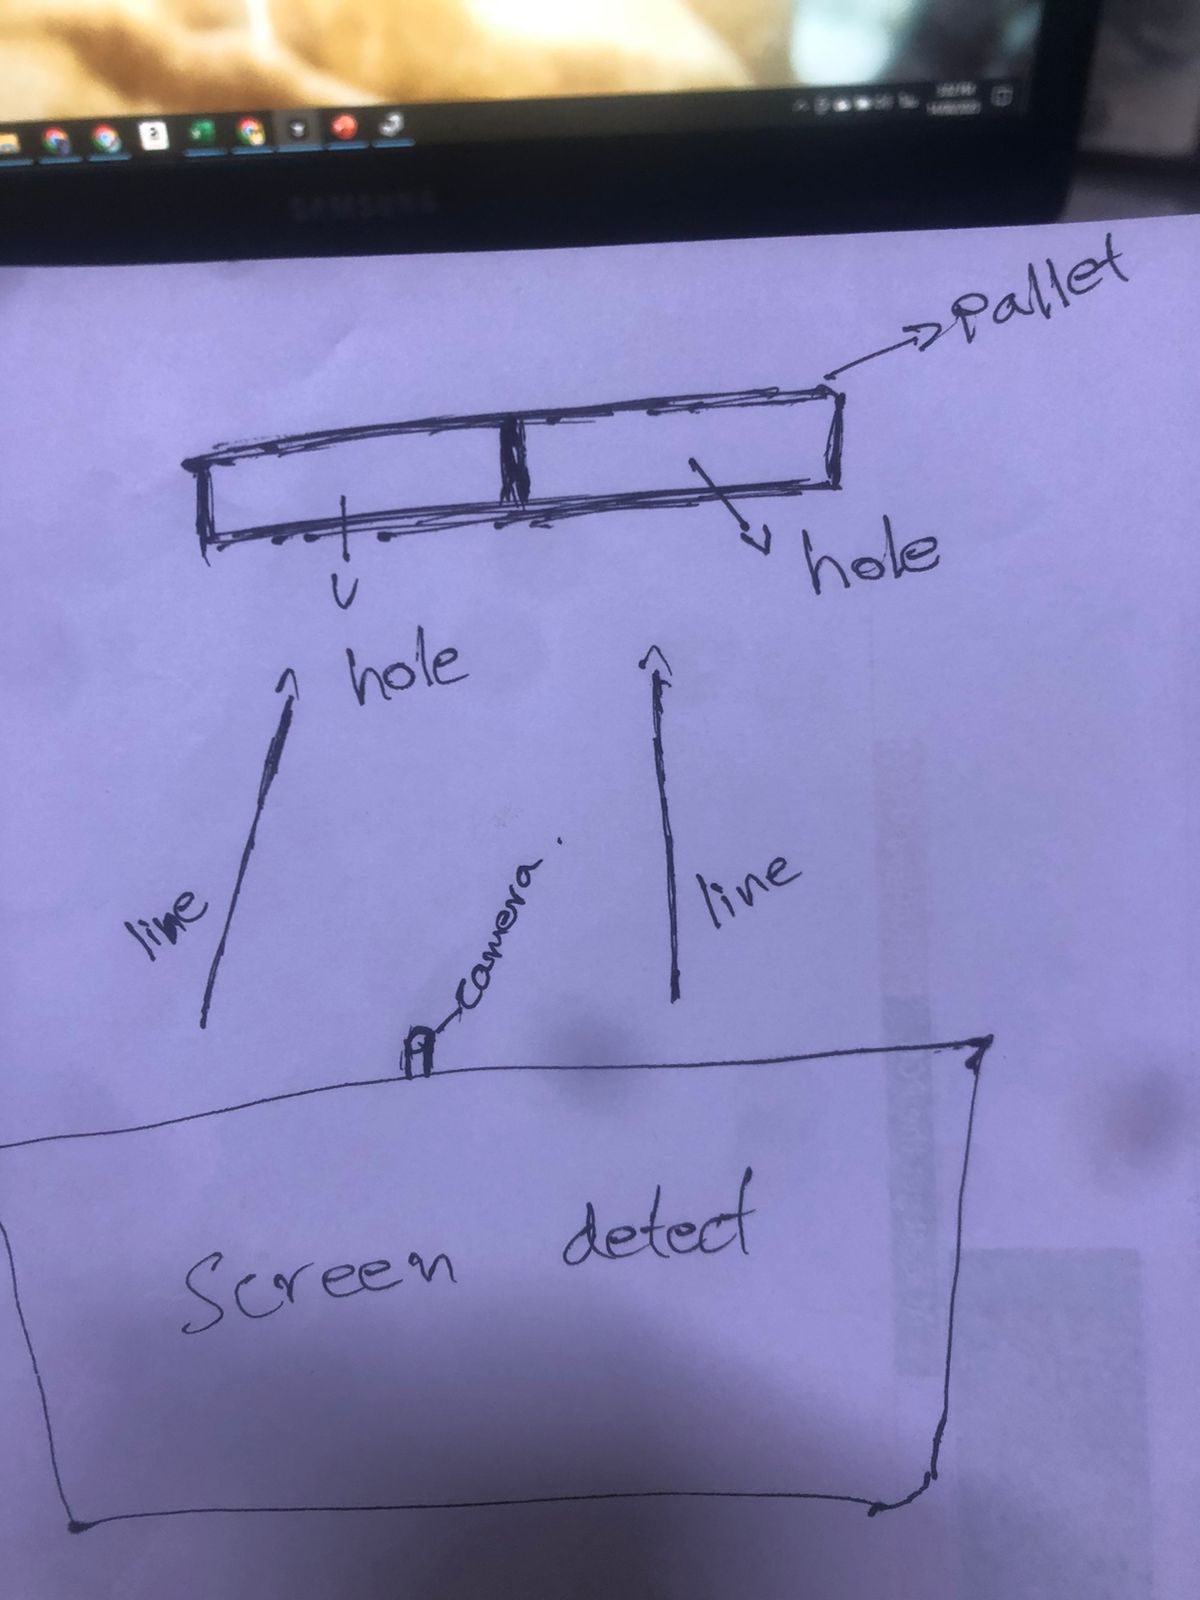 SAMSUNG
pallet
hole
hole
line
line
camera
Screen detect